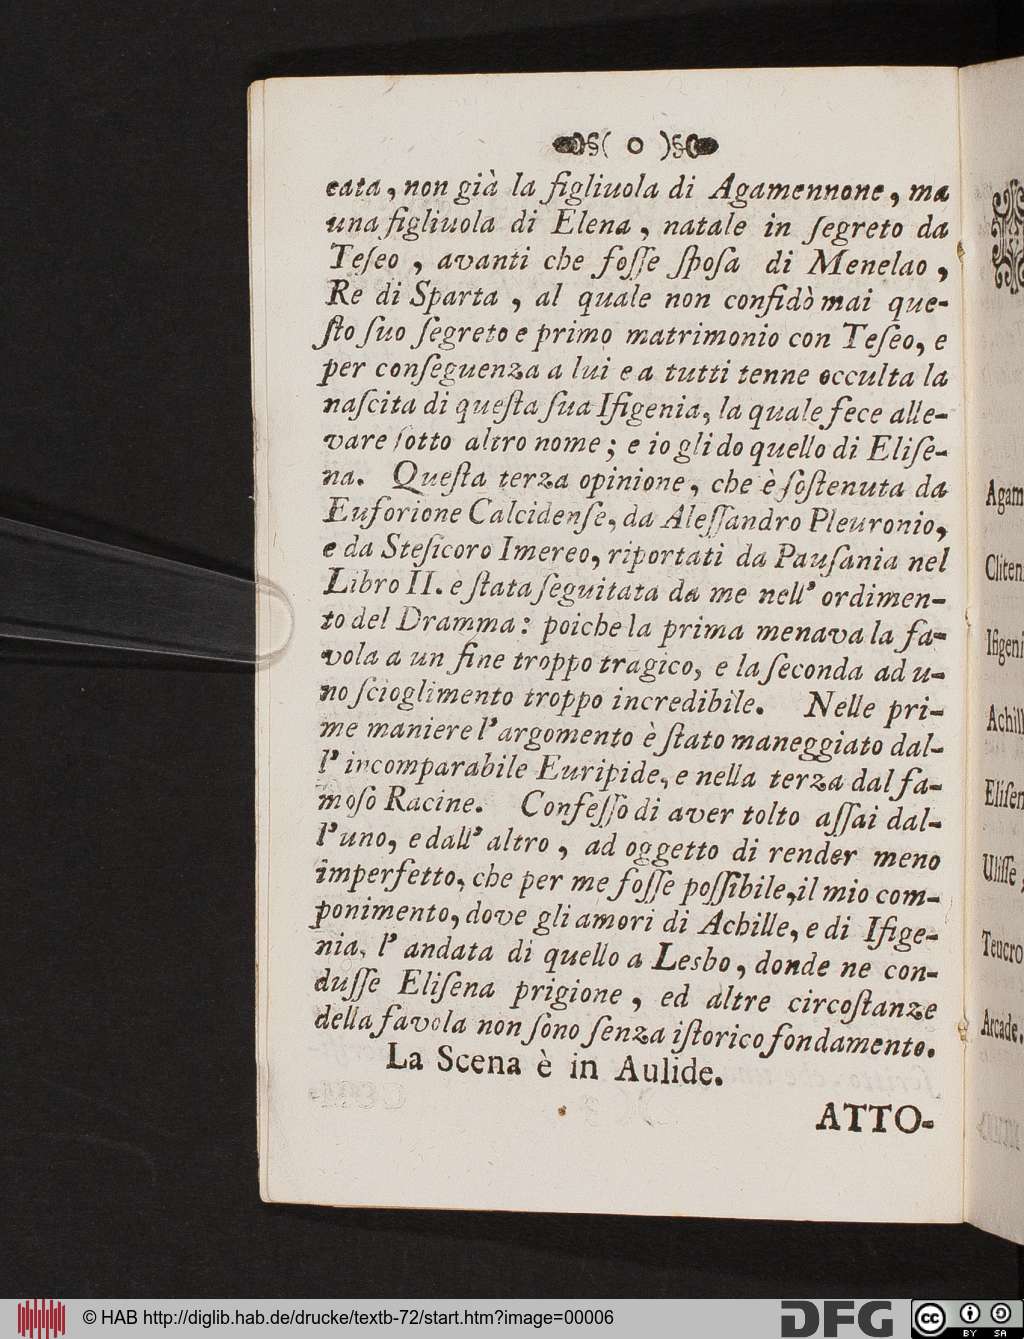 ( o )
cata, non già la figliuola di Agamennone, ma
una figliuola di Elena, natale in ſegreto da
Teſeo, avanti che foſſe ſpoſa di Menelao,
Re di Sparta, al quale non confidò mai que-
ſto ſuo ſegreto e primo matrimonio con Teſeo, e
per conſeguenza a lui e a tutti tenne occulta la
naſcita di queſta ſua Ifigenia, la quale fece alle-
vare ſotto altro nome; e io gli do quello di Eliſe-
na. Queſta terza opinione, che è ſoſtenuta da
Euforione Calcidenſe, da Aleſſandro Pleuronio,
e da Steſicoro Imereo, riportati da Pauſania nel
Libro II. e ſtata ſeguitata da me nell' ordimen-
to del Dramma: poiche la prima menava la fa-
vola a un fine troppo tragico, e la ſeconda ad u-
no ſcioglimento troppo incredibile. Nelle pri-
me maniere l' argomento è ſtato maneggiato dal-
l' incomparabile Euripide, e nella terza dal fa-
moſo Racine. Confeſſo di aver tolto aſſai dal-
l' uno, e dall' altro, ad oggetto di render meno
imperfetto, che per me foſſe poſſibile, il mio com-
ponimento, dove gli amori di Achille, e di Ifige-
nia, l' andata di quello a Lesbo, donde ne con-
duſſe Eliſena prigione, ed altre circoſtanze
della favola non ſono ſenza iſtorico fondamento.
La Scena è in Aulide.
ATTO-
Agam
Cliten
Ifigeni
Achill
Eliſen
Uliſſe,
Teucro
Arcade.
© HAB http://diglib.hab.de/drucke/textb-72/start.htm?image=00006
DFG
cc BY SA